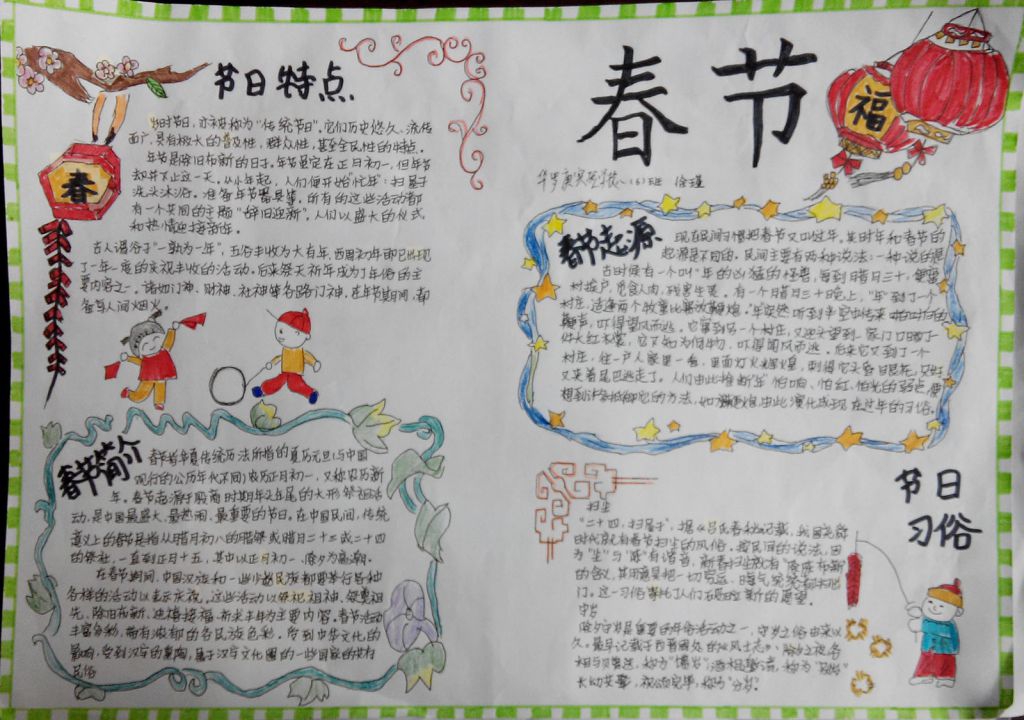 节日特点
岁时节日，亦被称为“传统节日”。它们历史悠久、流传
面广，具有极大的普及性，群众性，甚至全民性的特点。
年节是除旧布新的日子。年节虽定在正月初一，但年节
却并不止这一天。从小年起，人们便开始“忙年”：扫房子
洗头沐浴，准备年节器具等。所有的这些活动都
有一个共同的主题“辞旧迎新”。人们以盛大的仪式
和热情迎接新年。
古人谓谷子“一熟为一年”，五谷丰收为大有年。西周初年即已出现
了一年一度的庆祝丰收的活动。后来祭天祈年成为了年俗的主
要内容之一。诸如门神、财神、社神等各路门神，在年节期间，都
备享人间烟火。
春
春节简介
春节指华夏传统历法所指的夏历元旦（与中国
现行的公历年代不同）农历正月初一，又称农历新
年。春节起源于殷商时期年头年尾的大形祭祖活
动，是中国最盛大、最热闹、最重要的节日。在中国民间，传统
意义上的春节是指从腊月初八的腊祭或腊月二十三或二十四
的祭灶，一直到正月十五，其中以正月初一、除夕为高潮。
在春节期间，中国汉族和一些少数民族都要举行各种
各样的活动以表示庆祝。这些活动以祭祀祖神、祭奠祖
先、除旧布新、迎禧接福、祈求丰年为主要内容。春节活动
丰富多彩，带有浓郁的各民族色彩。受到中华文化的
影响，受到汉字的熏陶，属于汉字文化圈的一些国家的共有
民俗
春节
福
春节起源
现在民间习惯把春节又叫过年。其时年和春节的
起源是不同的。民间主要有两种说法：一种说的是
古时候有一个叫“年”的凶猛的怪兽，每到腊月三十，便窜
村挨户，觅食人肉，残害生灵。有一个月腊月三十晚上，“年”到了一个
村庄，适逢两个牧童比赛放鞭炮。“年”突然听到半空中传来啪啪的
鞭声，吓得望风而逃。它窜到另一个村庄，又迎头望到一家门口晒了
件大红衣裳，它不知为何物，吓得闻风而逃。后来它又到了一个
村庄，往一户人家里一看，里面灯火辉煌，刺得它头昏目眼花，只好
又夹着尾巴逃走了。人们由此推断“年”怕响、怕红、怕光的弱点，便
想到许多抵御它的方法，如放鞭炮，由此演化成现在过年的习俗。
节日
习俗
扫尘
“二十四，扫房子”，据《吕氏春秋》记载，我国尧舜
时代就有春节扫尘的风俗。按民间的说法：因
为“尘”与“陈”有谐音，新春扫尘就有“除陈布新”
的含义，其用意是把一切穷运、晦气统统扫出
门。这一习俗寄托了人们辞旧迎新的愿望。
守岁
除夕守岁是重要的年俗活动之一，守岁之俗由来以
久。最早记载于西晋周处的《风土志》：除夕之夜，各
相与赠送，称为“馈岁”；酒相邀请，称为“别岁”
长幼共聚，祝颂完毕，称为“分岁”。